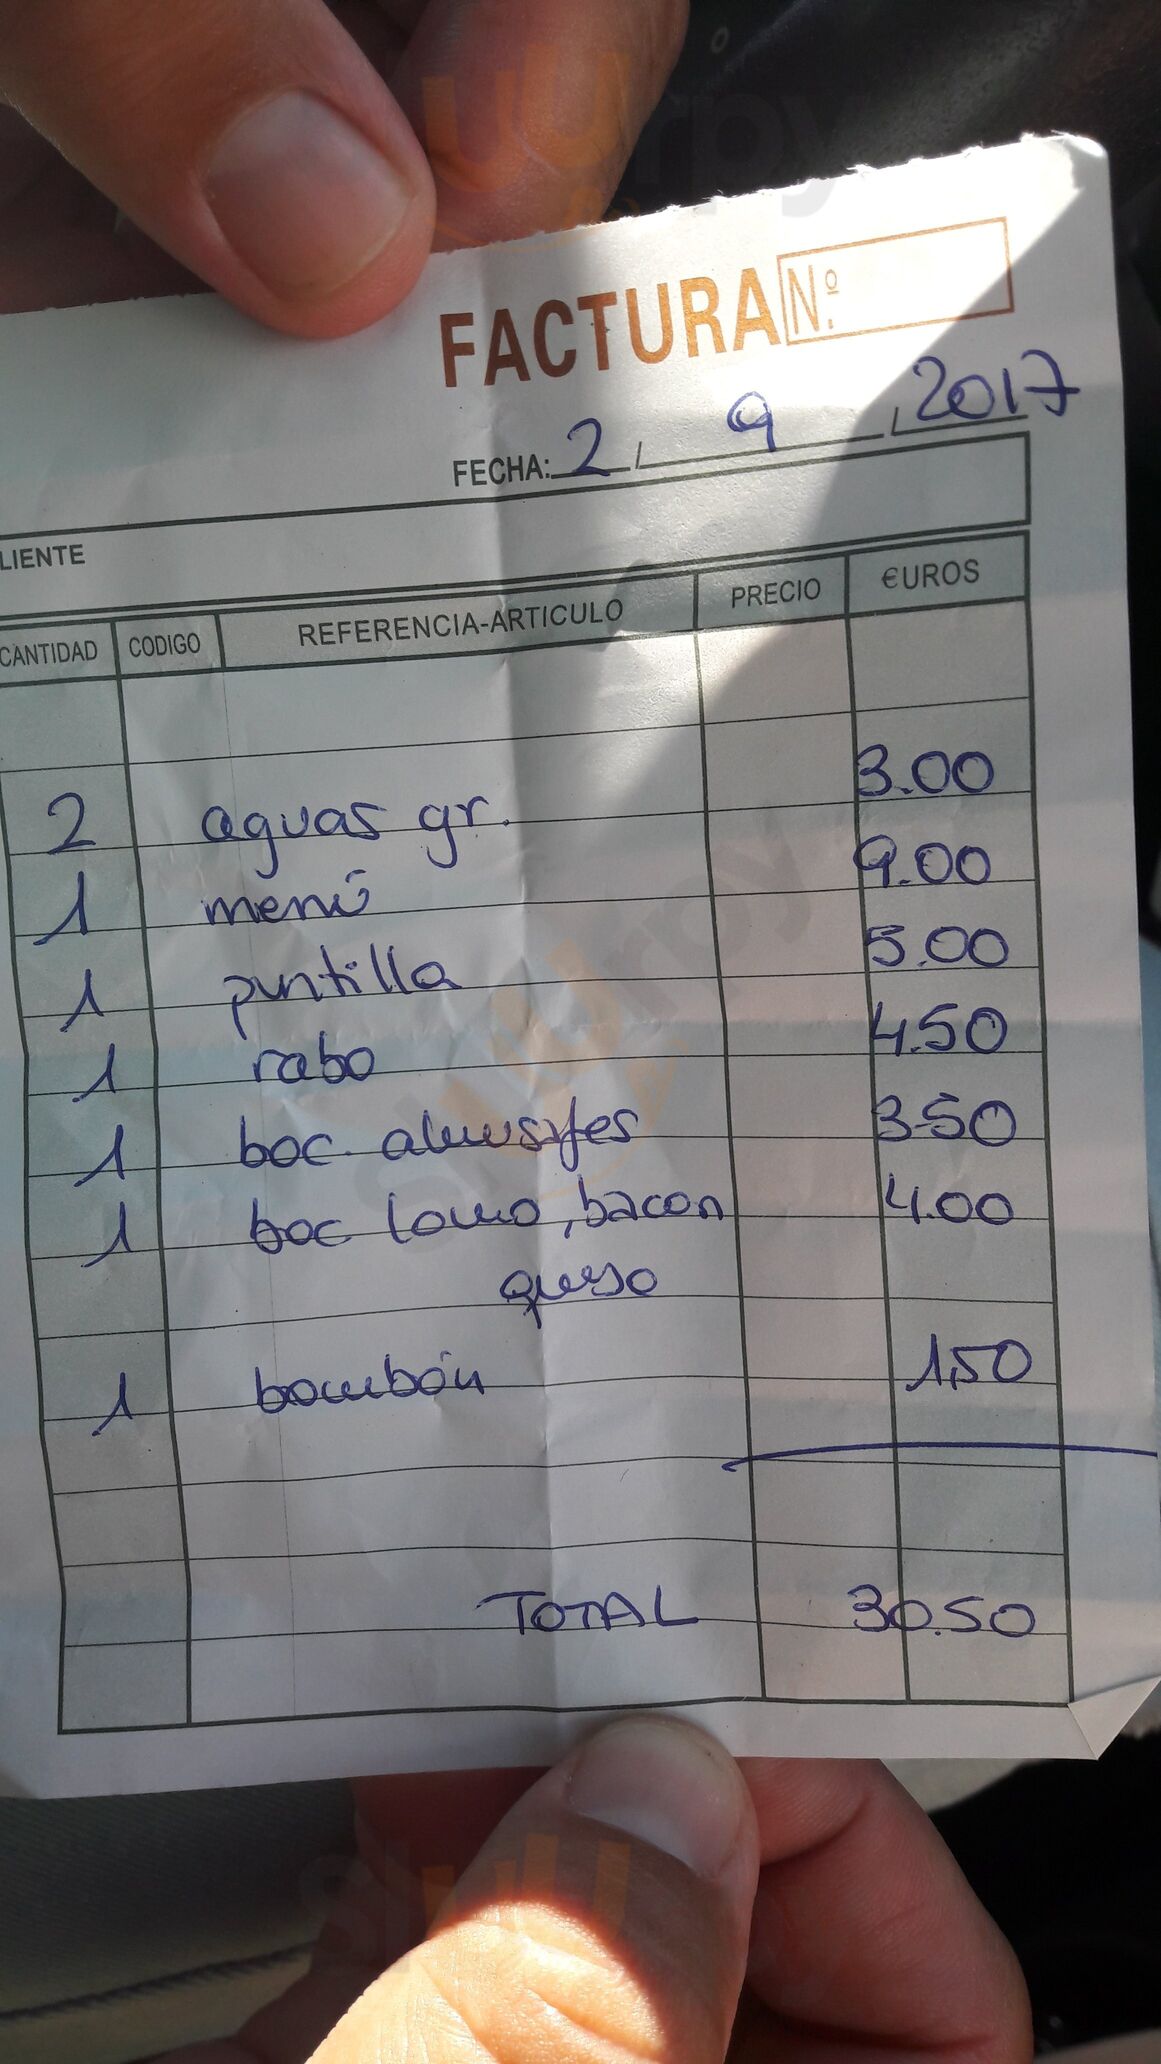 FACTURA Nº.
FECHA: 2 / 9 / 2017
LIENTE
CANTIDAD CODIGO REFERENCIA-ARTICULO PRECIO €UROS
2 aguas gr. 3.00
1 menú 9.00
1 puntilla 5.00
1 rabo 4.50
1 boc. almusafes 3.50
1 boc lomo, bacon 4.00
queso
1 bombón 1,50
TOTAL 30.50
sluurpy
sluurpy
sluurpy